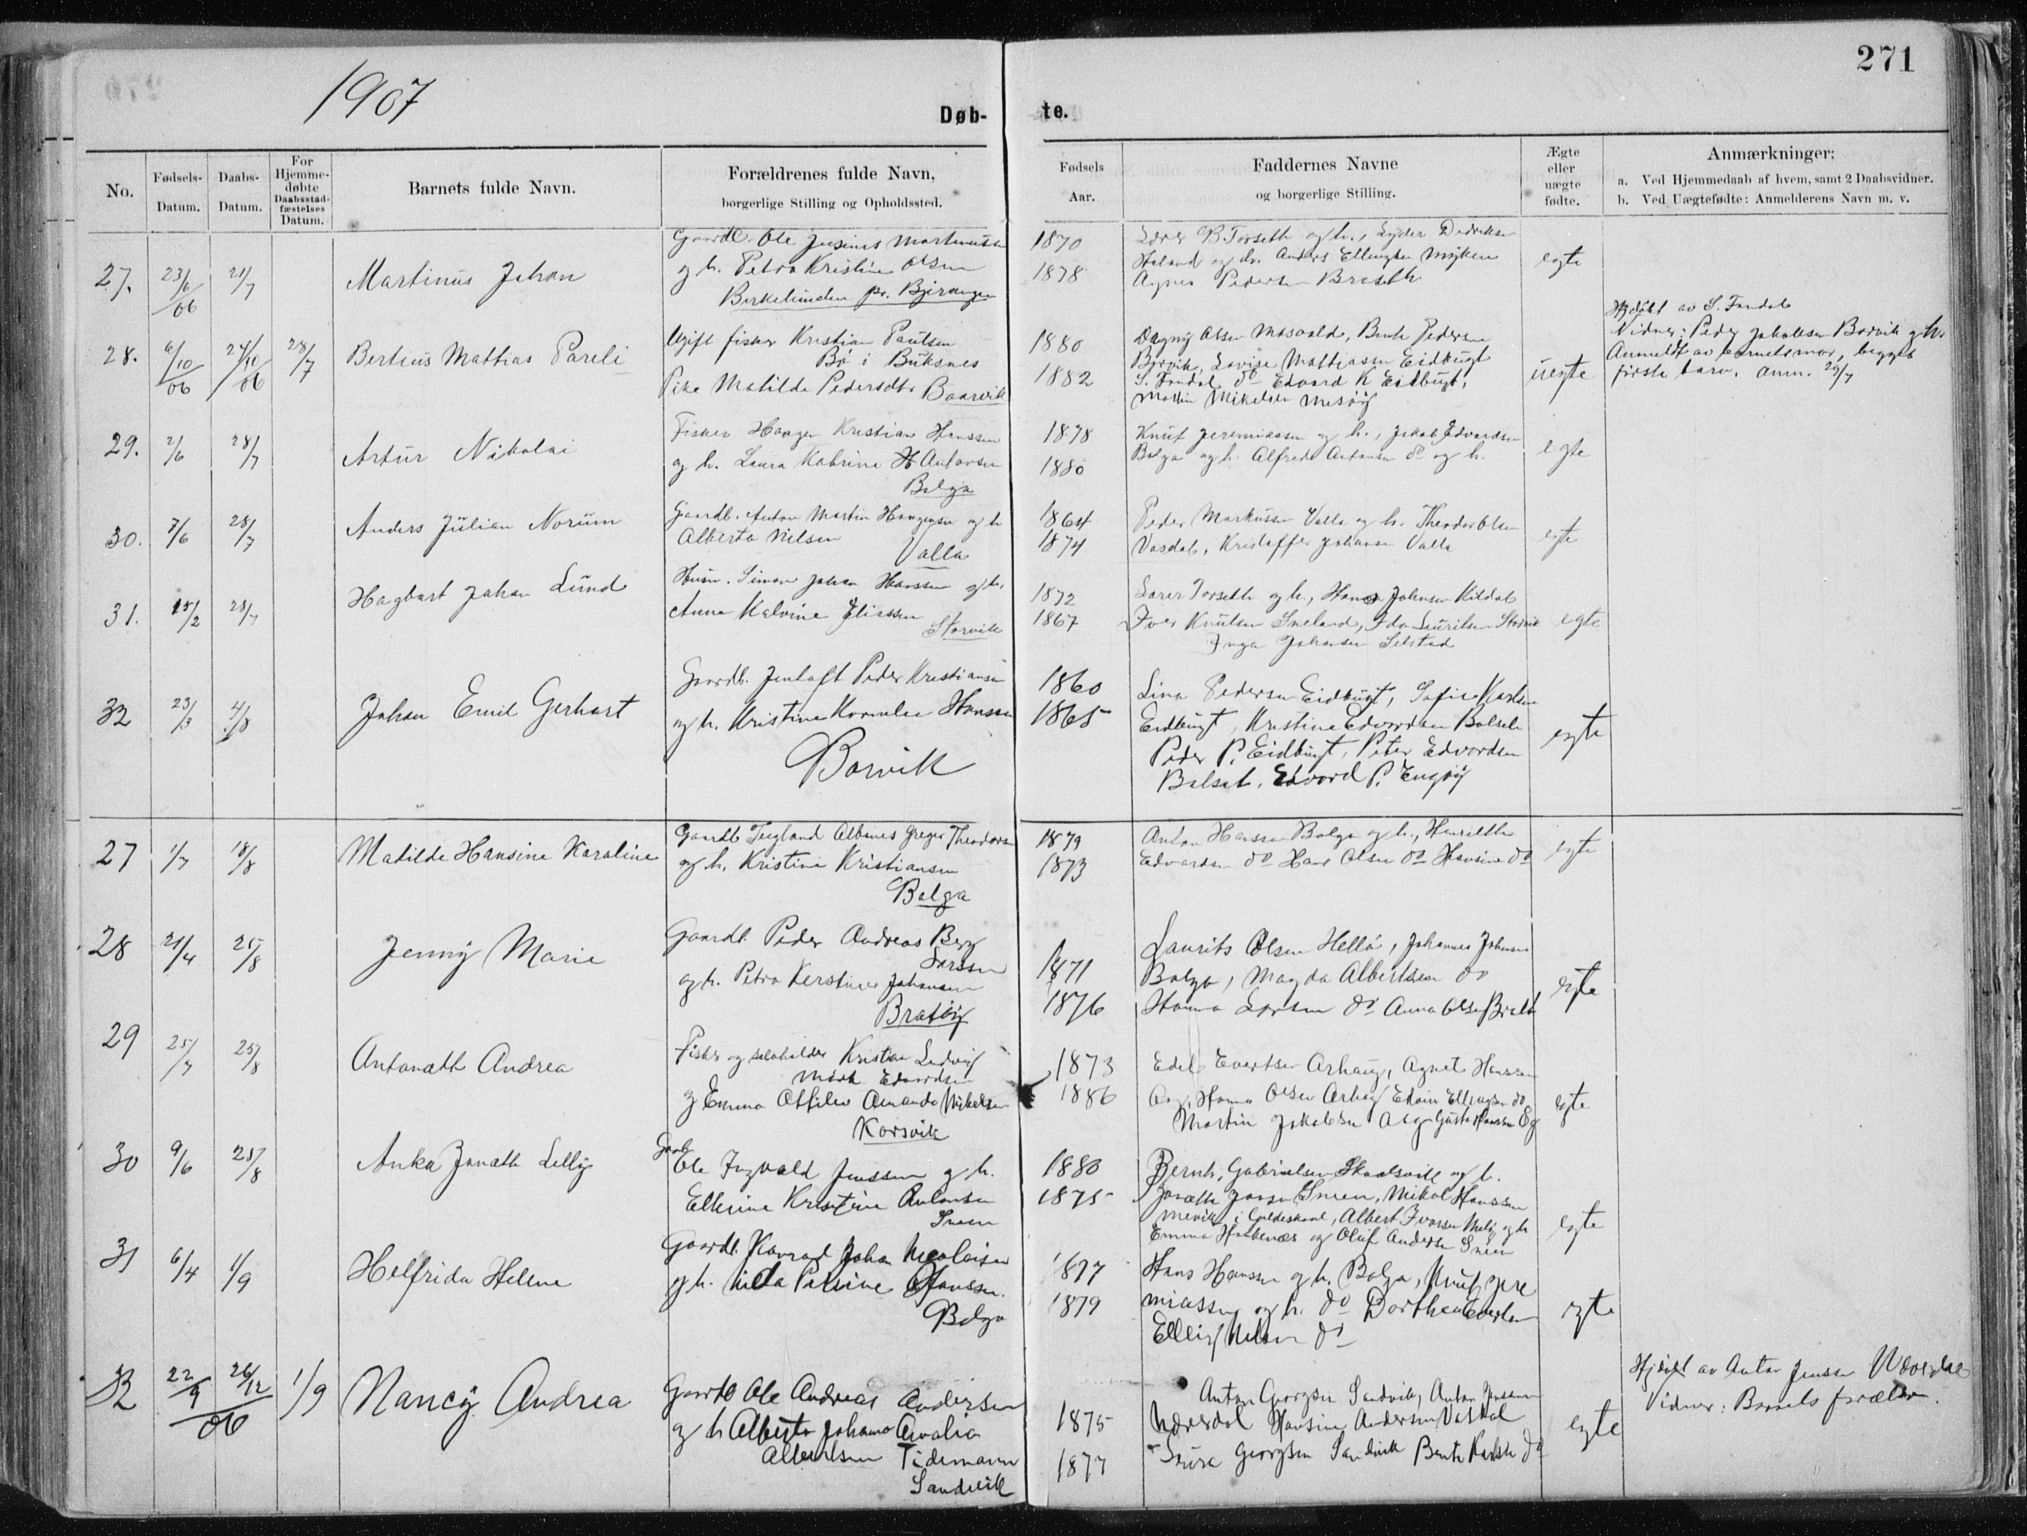 271
1907
Døb-
te.
No.
Fødsels-
Datum.
Daabs-
Datum.
For
Hjemme-
døbte
Daabsstad-
fæstelses
Datum.
Barnets fulde Navn.
Forældrenes fulde Navn,
borgerlige Stilling og Opholdssted.
Fødsels
Aar.
Faddernes Navne
og borgerlige Stilling.
Ægte
eller
uægte
fødte.
Anmærkninger:
a. Ved Hjemmedaab af hvem, samt 2 Daabsvidner.
b. Ved Uægtefødte: Anmelderens Navn m. v.
27. 23/6 06 21/7 Martinus Johan
Gaardb. Ole
og h. Petra Kristine Olsen
pr. Bjerangen
1870
1878
B. Torseth og h., Lyder Didriksen
Haland og h. Anders Ellingsen Myken
Agnes Pedersen
egte
28. 6/10 06 24/10 06 28/7 Bertius Mathias Pareli
Ugift fisker Kristian Paulsen
Bø i Buksnes
Pike Matilde Pedersdtr Baarvik
1880
1882
Dagny Olsen Masvald, Bente Pedersen
Lovise Mathiassen Eidbugt
S. Fondal do Edvard K Eidbugt,
Martin Mikelsen Mesøy
uegte
Hjdøbt av S. Fondal
Vidner: Peder Jakobsen Borvik og h.
Anmeldt av barnets mor, begges
første barn. anm. 29/7
29. 2/6 28/7 Artur Nikolai
Fisker Haagen Kristian Hanssen
og h. Laura Katrine H Antonsen
Bolga
1878
1880
Knut Jeremiassen og h., Jakob Edvardsen
Bolga og h. Alfred Antonsen do og h.
egte
30. 7/6 28/7 Anders Julian Norum
Gaardb. Anton Martin Haagensen og h
Alberta Nilsen
Valla
1864
1874
Peder Markussen Valla og h. Theodor Olsen
Vasdal, Kristoffer Johansen Valla
egte
31. 15/2 28/7 Hagbart Johan Lund
Husm. Simon Johan Hanssen og h.
Anna Kalvine Eliassen
Storvik
1872
1867
Torseth og h, Hans Johnsen Kildal
Iver Knutsen Sneland, Ida Lauritsen Storvik
Inga Johansen Selstad
egte
32 23/3 4/8 Johan Emil Gerhart
Gaardb. Jentoft Peder Kristiansen
og h. Kristine Kornelie Hanssen
Borvik
1860
1865
Lina Pedersen Eidbugt, Sofie Karlsen
Eidbugt, Kristine Edvardsen Bolsel
Peder P. Eidbugt, Peter Edvardsen
Edvard P. Engøy
egte
27 1/7 18/8 Matilde Hansine Karoline
Gaardb Albenes Greger Theodorsen
og h. Kristine Kristiansen
Bolga
1879
1873
Anton Hanssen Bolga og h., Henrikke
Edvardsen do Hans Olsen do Hansine do
egte
28 21/4 25/8 Jenny Marie
Gaardb. Peder Andreas Berg
Larssen
og h. Petra Kerstine Johansen
Bratøy
1871
1876
Laurits Olsen Helløi, Johannes Johansen
Bolga, Magda Albertsen do
Hanna Larsen do Anna Olsen
egte
29 25/7 25/8 Antonath Andrea
Fisker og Kristian Ludvig
Mørk Edvardsen
og Emma Ottilie Amanda Mikelsen
Korsvik
1873
1886
Edel Evertsen Arhaug, Agnete Hanssen
Hanna Olsen Arhaug Edvin Ellingsen do
Martin Jakobsen
egte
30 9/6 25/8 Anka Jonath Lilly
Gaardb
Ole Ingvald Jenssen og h.
Ellerine Kristine Antonsen
Sneen
1880
1875
Bernh. Gabrielsen og h.
Jensen Sneen, Mikal Hanssen
Mevik i Gildeskaal, Albert Ivarsen Meløy og h
Emma og Oluf Andersen Sneen
egte
31 6/4 1/9 Helfrida Helene
Gaardb. Konrad Johan Nicolaisen
og h. Hilda Petrine Hanssen.
Bolga
1877
1879
Hans Hansen og h. Bolga, Knut Jere
miassen og h. do Dorthea Evertsen
Nilsen do
egte
32 22/9 06 26/12 1/9 Nancy Andrea
Gaardb Ole Andreas Andersen
og h Alberte Johanna Amalia
Albertsen Tidemann
Sandvik
1875
1877
Anton Georgsen Sandvik, Anton Jenssen
Hansine Andersen Vasdal
Georgsen Sandvik Bente do
egte
Hjdøbt av Anton Jenssen
Vidner: Barnets forældre.